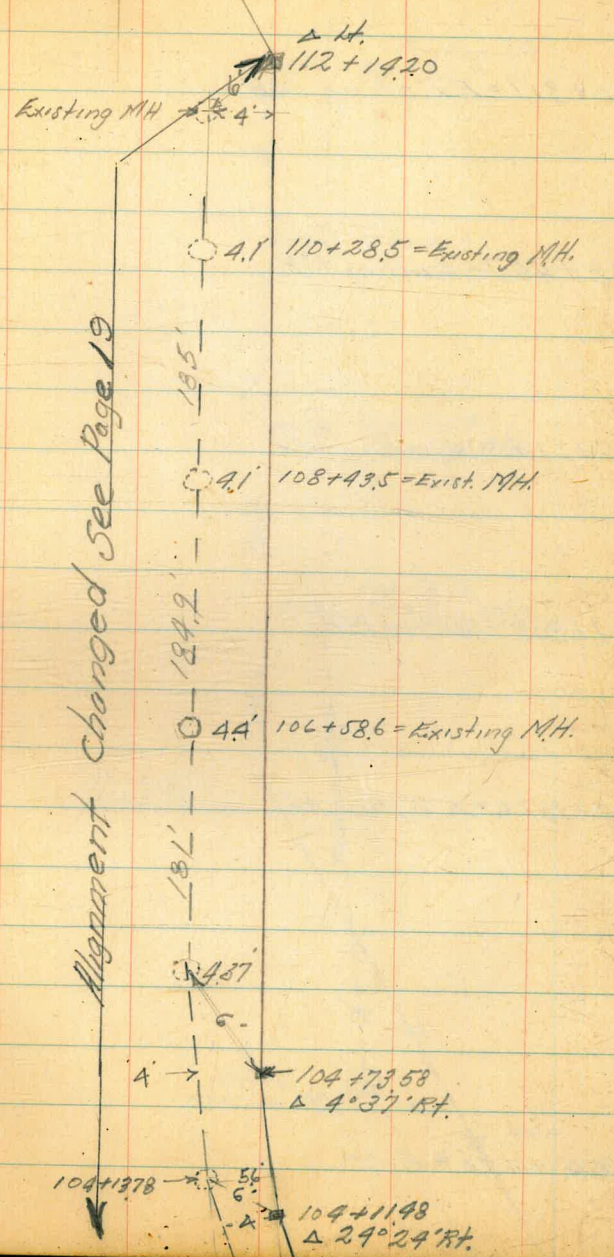 Δ Lt.
112 + 14.20
6'
Existing MH
4'
4.1' 110+28.5 = Existing M.H.
185'
4.1' 108+43.5 = Exist. MH.
184.9'
4.4' 106+58.6 = Existing M.H.
181'
4.37'
6'
4' 104+73.58
Δ 4°37' Rt.
104+13.78
6'
4' 104+11.48
Δ 24°24' Rt.
Alignment Changed See Page 19